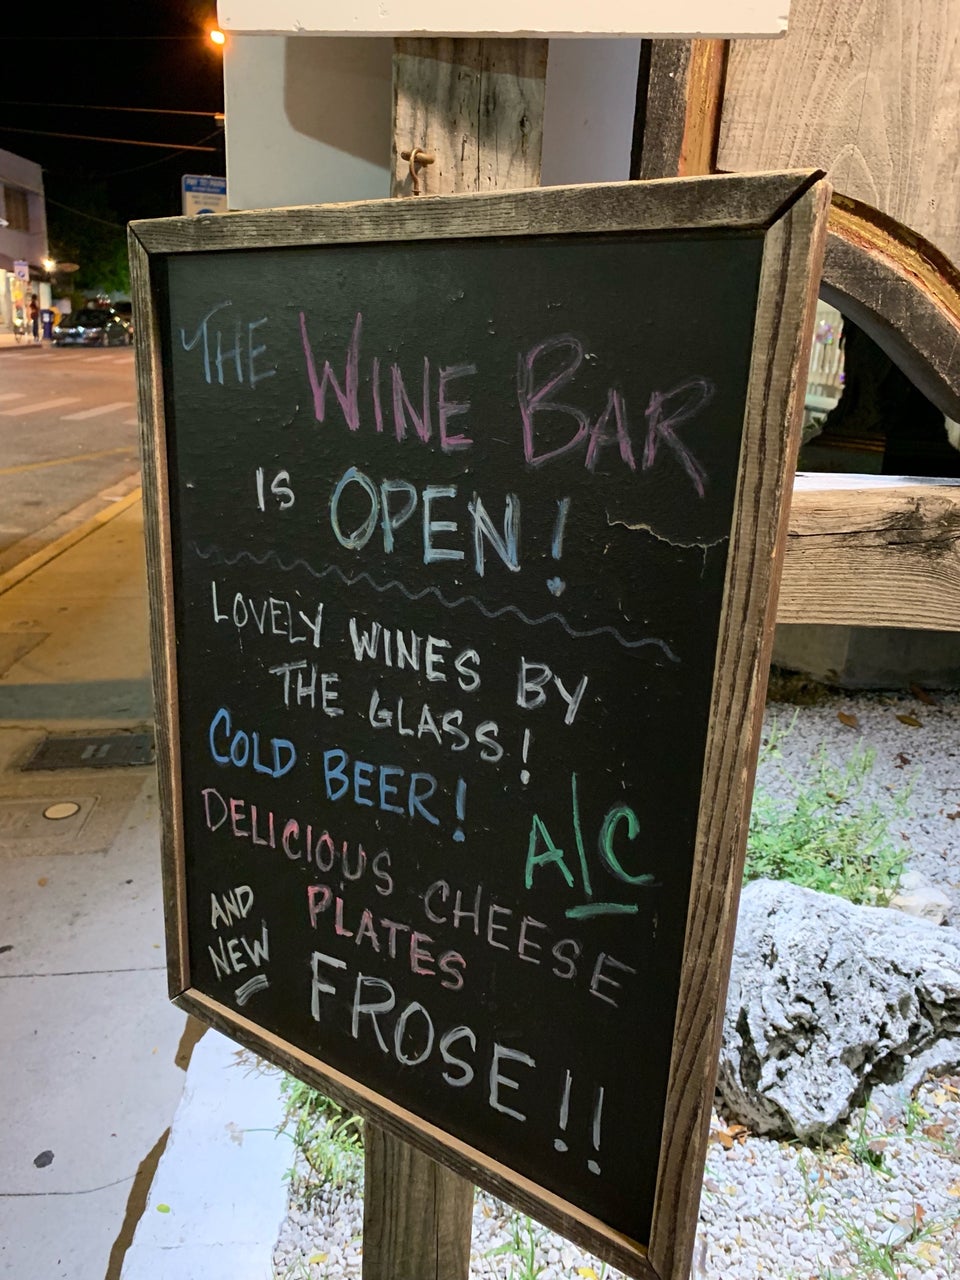 THE WINE BAR
IS OPEN!
LOVELY WINES BY
THE GLASS!
COLD BEER!
A/C
DELICIOUS CHEESE
PLATES
AND
NEW
FROSE!!
PAY TO PARK